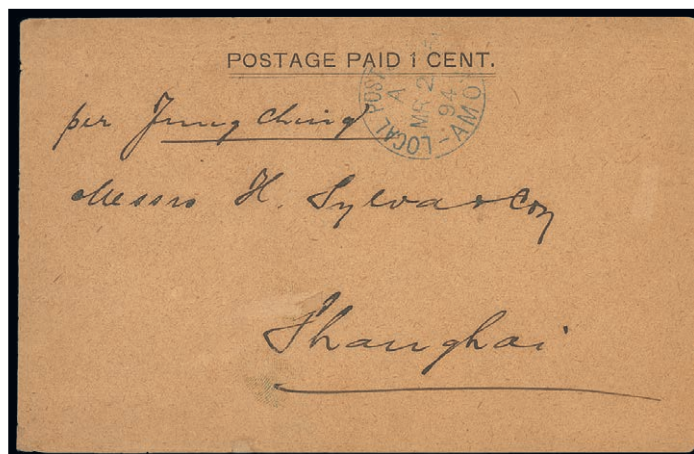 POSTAGE PAID 1 CENT.
LOCAL POST
A
MR 2
94
AMO
per Jungching
Messrs H. Sylva & Coy
Shanghai